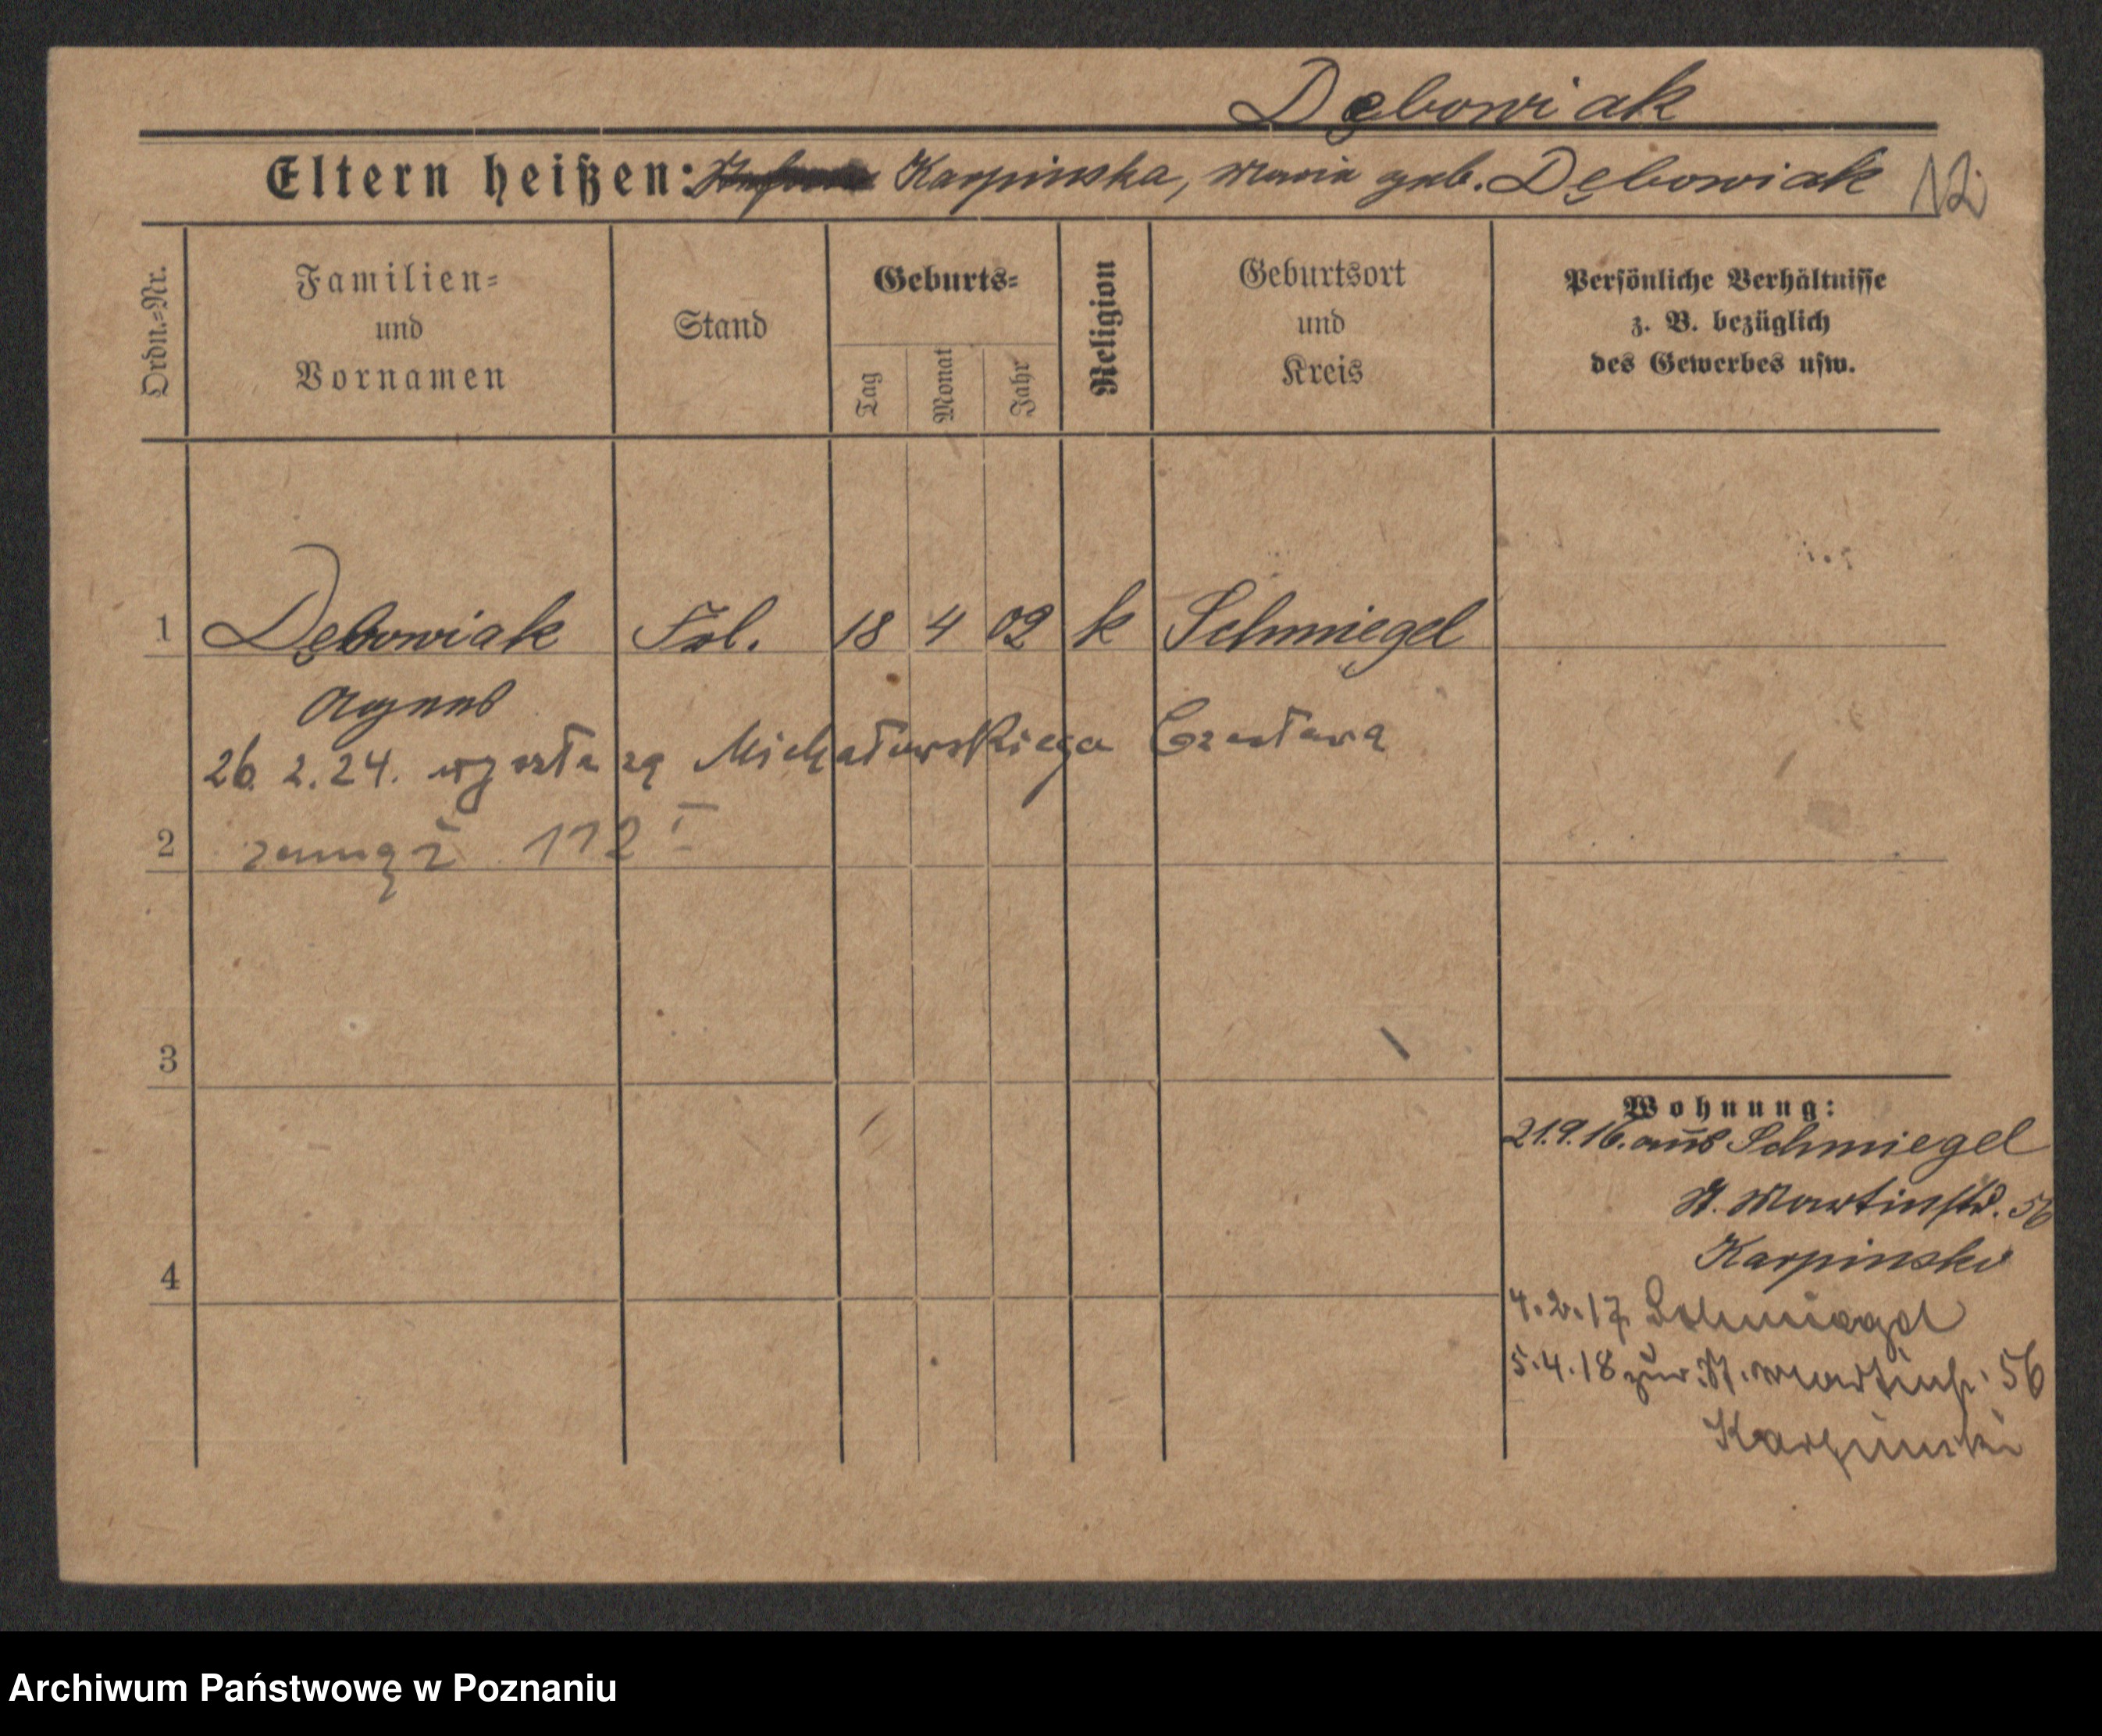 Dębowiak
Eltern heißen: Karpinska, Maria geb. Dębowiak 12
Ordn.=Nr.
Familien=
und
Vornamen
Stand
Geburts=
Tag
Monat
Jahr
Religion
Geburtsort
und
Kreis
Persönliche Verhältnisse
z. B. bezüglich
des Gewerbes usw.
1 Dębowiak Frl. 18 4 02 k Schmiegel
Agnes
26. 2. 24. wyszła za Michałowskiego Czesława
2 zamąż 112 I
3
4
Wohnung:
21.9.16. aus Schmiegel
St. Martinstr. 56
Karpinski
4.2.17. Schmiegel
5.4.18 zur. St. Martinstr. 56
Karpinski
Archiwum Państwowe w Poznaniu